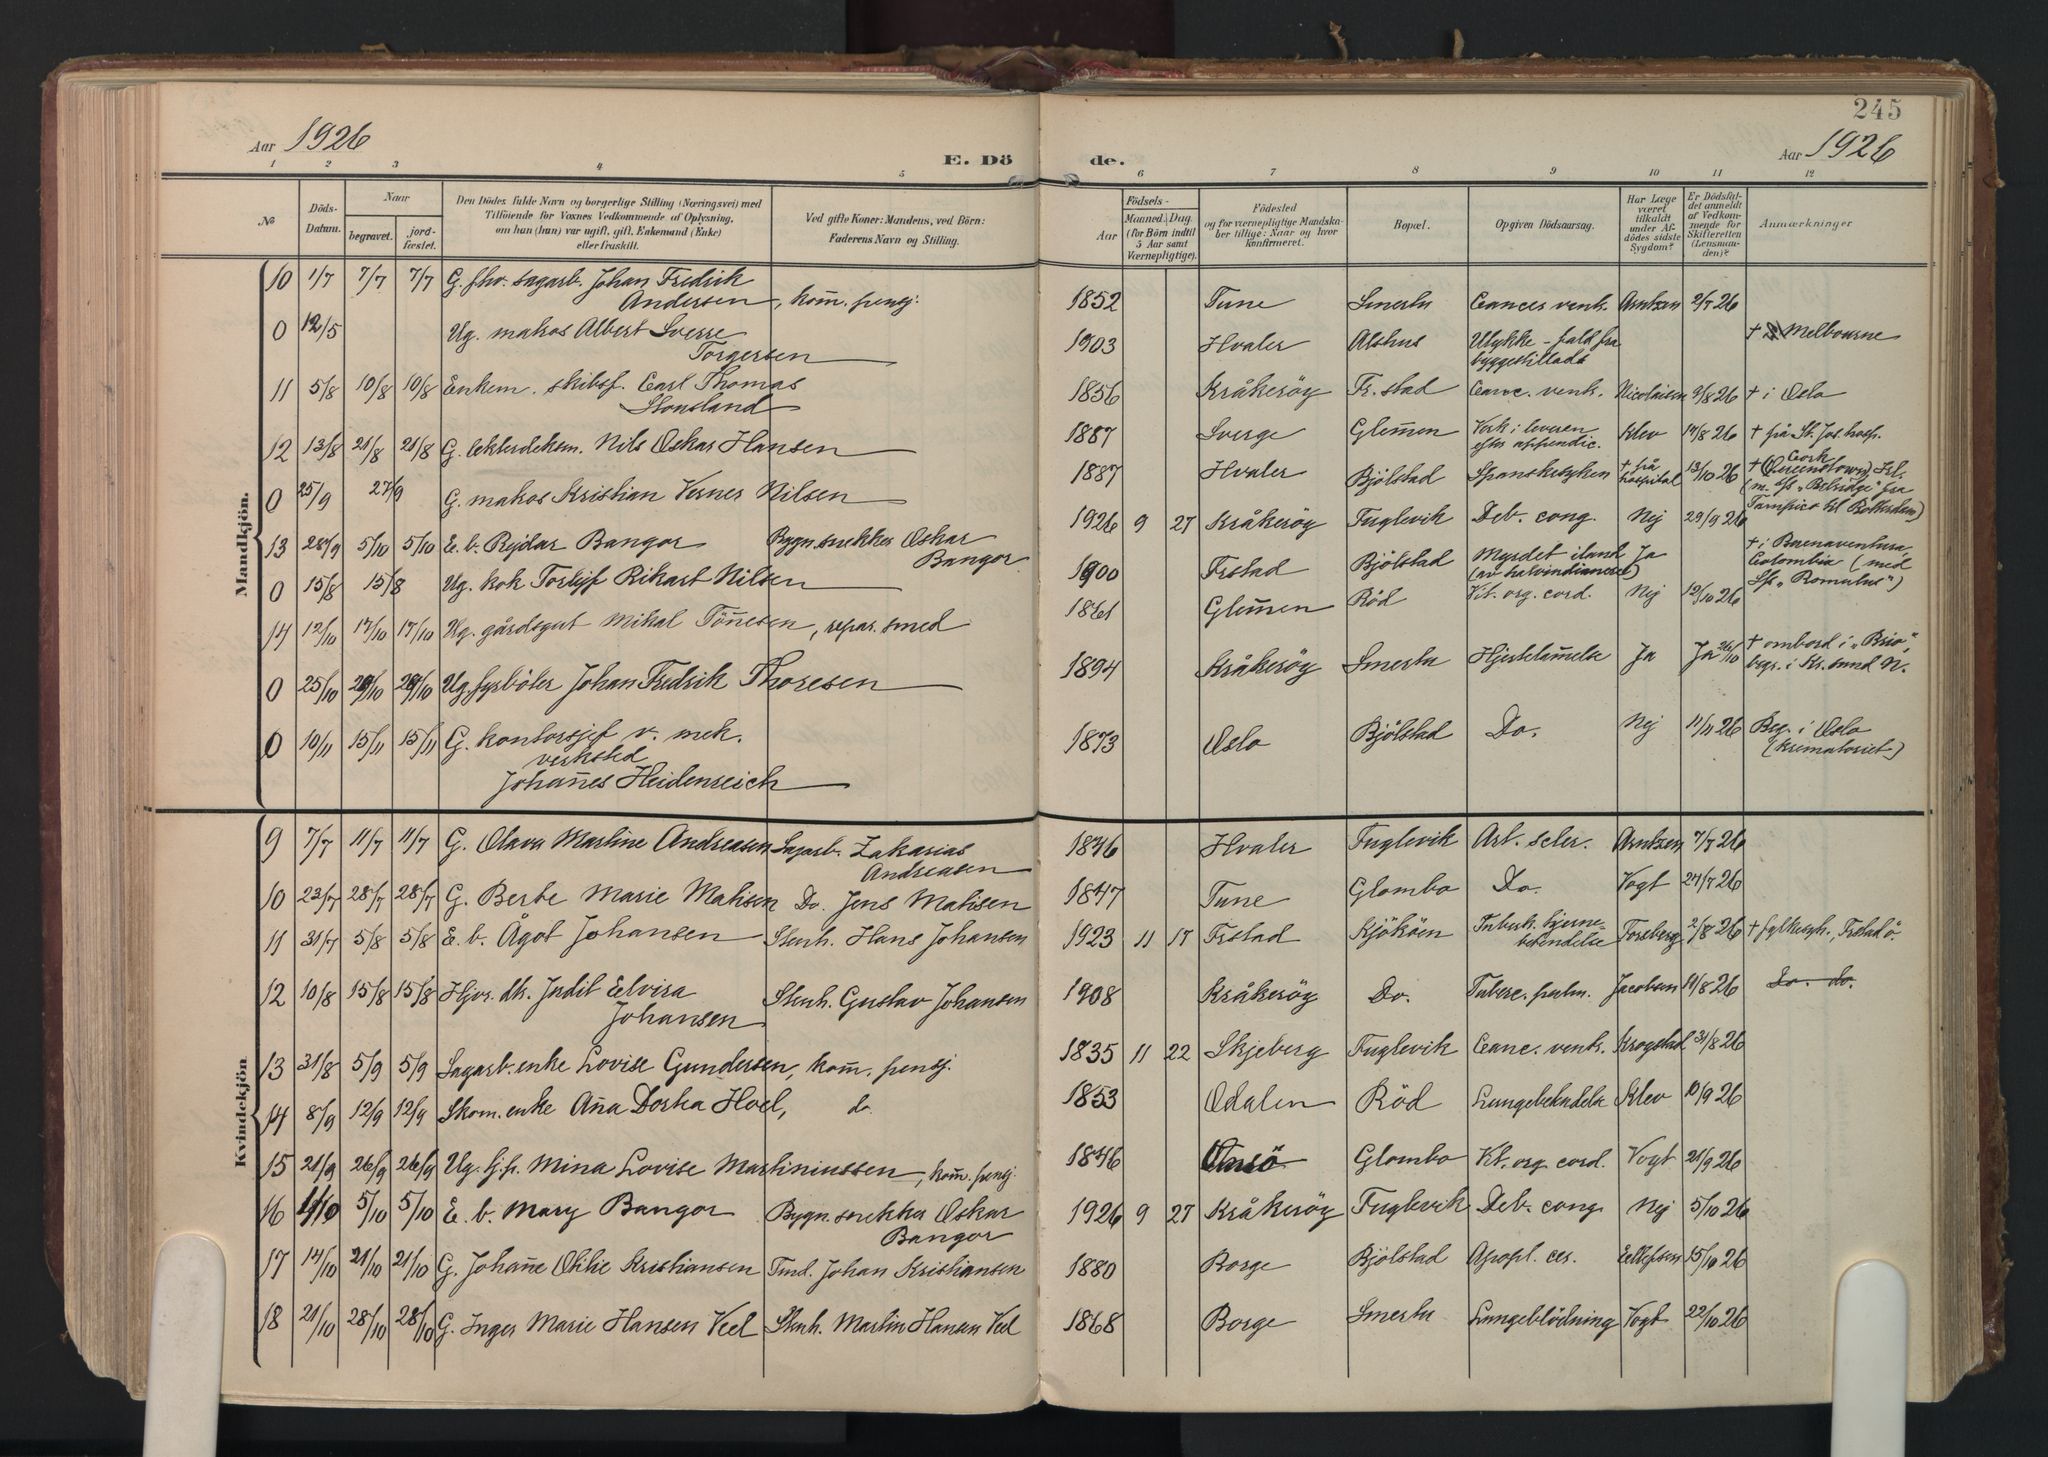 245
Aar 1926
E. Dö
de.
Aar 1926
1 2 3 4 5 6 7 8 9 10 11 12
№
Döds-Datum.
Naar
begravet.
jord-fæstet.
Den Dödes fulde Navn og borgerlige Stilling (Næringsvei) med
Tilföiende for Voxnes Vedkommende af Oplysning,
om han (hun) var ugift, gift, Enkemand (Enke)
eller fraskilt.
Ved gifte Koner: Mandens, ved Börn:
Faderens Navn og Stilling.
Födsels-
Aar
Maaned. Dag.
(for Börn indtil
5 Aar samt
Værnepligtige).
Födested
og for værnepligtige Mandska-
ber tillige: Naar og hvor
konfirmeret.
Bopæl.
Opgiven Dödsaarsag.
Har Læge
været
tilkaldt
under Af-
dödes sidste
Sygdom?
Er Dödsfal-
det anmeldt
af Vedkom-
mende for
Skifteretten
(Lensman-
den)?
Anmærkninger
Mandkjön.
10 1/7 7/7 7/7 G. fhv. sagarb. Johan Fredrik
Andersen, kom̄. pensj. 1852 Tune Smertu Cances ventr. Arntzen 2/7 26
0 12/5 Ug. matros Albert Sverre
Torgersen 1903 Hvaler Alshus Ulykke - fald fra
byggestillads † Melbourne
11 5/8 10/8 10/8 Enkem. skibsf. Carl Thomas
Stousland 1856 Kråkeröy Fr.stad Canc. ventr. Nicolaisen 9/8 26 † i Oslo
12 13/8 21/8 21/8 G. lekterdekom. Nils Oskar Hansen 1887 Sverge Glem̄en Verk i leveren
efter appendic. Klev 14/8 26 † på St. Jos. hosp.
0 25/9 27/9 G. matros Kristian Verner Nilsen 1887 Hvaler Bjölstad Spanskesyken † på
hospital 13/10 26 † Cork
(Queenstown) Irl.
(m. s/s "Belridge" fra
Tampico til Rotterdam)
13 28/9 5/10 5/10 E. b. Rejdar Bangor Bygn.snekker Oskar
Bangor 1926 9 27 Kråkeröy Fuglevik Deb. cong. Nej 29/9 26
0 15/8 15/8 Ug. kok Torleif Rikart Nilsen 1900 Frstad Bjölstad Myrdet iland
(av halvindianere) Ja † i Buenaventura,
Colombia (med
S/s "Romulus")
14 12/10 17/10 17/10 Ug. gårdsgut Mikal Tön̄esen, repar. smed 1861 Glem̄en Röd Vit. org. cord. Nej 12/10 26
0 25/10 29/10 29/10 Ug. fyrböter Johan Fredrik Thoresen 1894 Kråkeröy Smertu Hjertelam̄else Ja Ja 26/10 † ombord i "Brio",
begr. i Kr.sund N.
0 10/11 15/11 15/11 G. kontorsjef v. mek.
verksted
Johan̄es Heidenreich 1873 Oslo Bjölstad Do. Nej 11/11 26 Beg. i Oslo
(krematoriet)
Kvindekjön
9 7/7 11/7 11/7 G. Olava Martine Andreasen Sagarb. Zakarias
Andreasen 1846 Hvaler Fuglevik Art. scler. Arntzen 7/7 26
10 23/7 28/7 28/7 G. Berte Marie Matisen Do. Jens Matisen 1847 Tune Glombo Do. Vogt 24/7 26
11 31/7 5/8 5/8 E. b. Ågot Johansen Stenh. Hans Johansen 1923 11 17 Frstad Kjököen Tuberk. hjerne-
betendelse Forsberg 2/8 26 † fylkessyk., Frstad ö.
12 10/8 15/8 15/8 Hjv. dtr. Judit Elvira
Johansen Stenh. Gustav Johansen 1908 Kråkeröy Do. Tuberc. pulm. Jacobsen 11/8 26 Do. do.
13 31/8 5/9 5/9 Sagarb.enke Lovise Gundersen, kom̄. pensj. 1835 11 22 Skjeberg Fuglevik Canc. ventr. Krogstad 31/8 26
14 8/9 12/9 12/9 Skom.enke An̄a Dortea Hoel, do. 1853 Odalen Röd Lungebetendelse Klev 10/9 26
15 21/9 26/9 26/9 Ug. Mina Lovise Martiniussen, kom̄. pensj. 1846 Onsö Glombo Vit. org. cord. Vogt 21/9 26
16 1/10 5/10 5/10 E. b. Mary Bangor Bygn.snekker Oskar
Bangor 1926 9 27 Kråkeröy Fuglevik Deb. cong. Nej 5/10 26
17 14/10 21/10 21/10 G. Johan̄e Otilie Kristiansen Tind. Johan Kristiansen 1880 Borge Bjölstad Apopl. ces. Ellefsen 15/10 26
18 21/10 28/10 28/10 G. Inger Marie Hansen Veel Stenh. Martin Hansen Veel 1868 Borge Smertu Lungeblödning Vogt 22/10 26